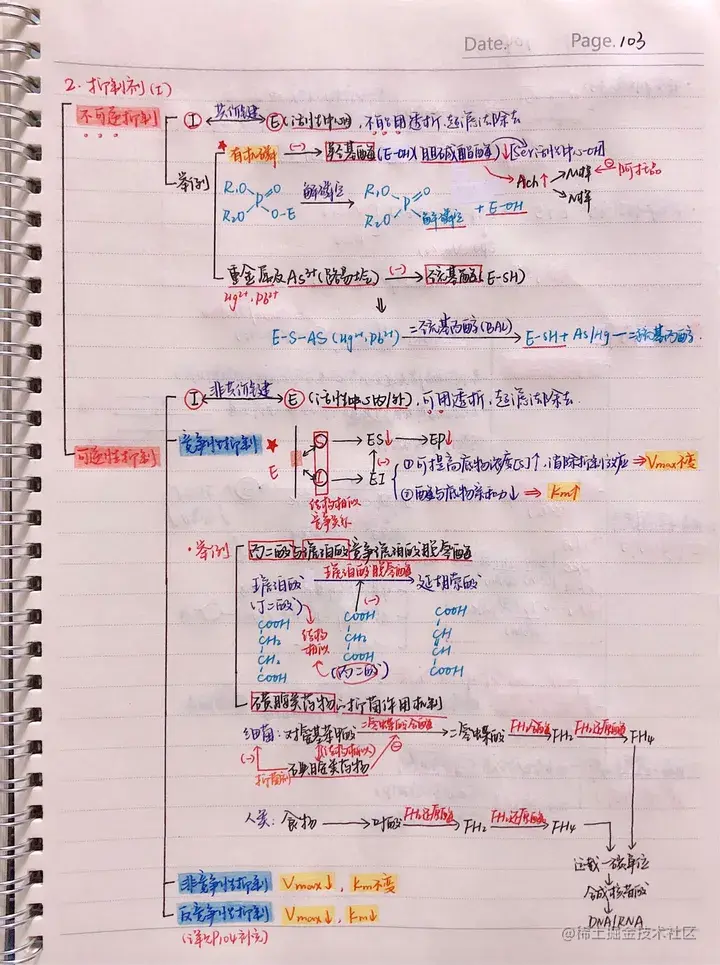 Date. Page. 103
2. 抑制剂(I)
不可逆抑制
I 共价键 E(活性中心), 不能用透析、超滤法除去
举例
★有机磷 (-) 羟基酶(E-OH)(胆碱酯酶)↓ [Ser活性中心-OH]
Ach↑ M样 ⊖ 阿托品
N样
R₁O O
P
R₂O O-E
解磷定
R₁O O
P
R₂O 解磷定
+ E-OH
重金属及As³⁺(路易士气) (-) 巯基酶(E-SH)
Hg²⁺, Pb²⁺
E-S-AS(Hg²⁺, Pb²⁺) 二巯基丙醇(BAL) E-SH + As/Hg-二巯基丙醇.
可逆性抑制
I 非共价键 E(活性中心内/外), 可用透析、超滤法除去
竞争性抑制 ★
E
S ES↓ EP↓
(-)
I EI
结构相似
竞争关系
①可提高底物浓度[S]↑, 消除抑制效应 ⇒ Vmax不变
②酶与底物亲和力↓ ⇒ Km↑
·举例
丙二酸与琥珀酸竞争琥珀酸脱氢酶
琥珀酸 琥珀酸脱氢酶 延胡索酸
(丁二酸) (-)
COOH COOH COOH
CH₂ 结构相似 CH₂ CH
CH₂ COOH CH
COOH (丙二酸) COOH
磺胺类药物的抑菌作用机制
细菌: 对氨基苯甲酸 二氢蝶酸合酶 二氢蝶酸 FH₂合酶 FH₂ FH₂还原酶 FH₄
(-) (结构相似) ⊖
抑菌剂 磺胺类药物
人类: 食物 叶酸 FH₂还原酶 FH₂ FH₂还原酶 FH₄
运载一碳单位
合成核苷酸
DNA/RNA
非竞争性抑制 Vmax↓, Km不变
反竞争性抑制 Vmax↓, Km↓
(详见P104补充)
@稀土掘金技术社区